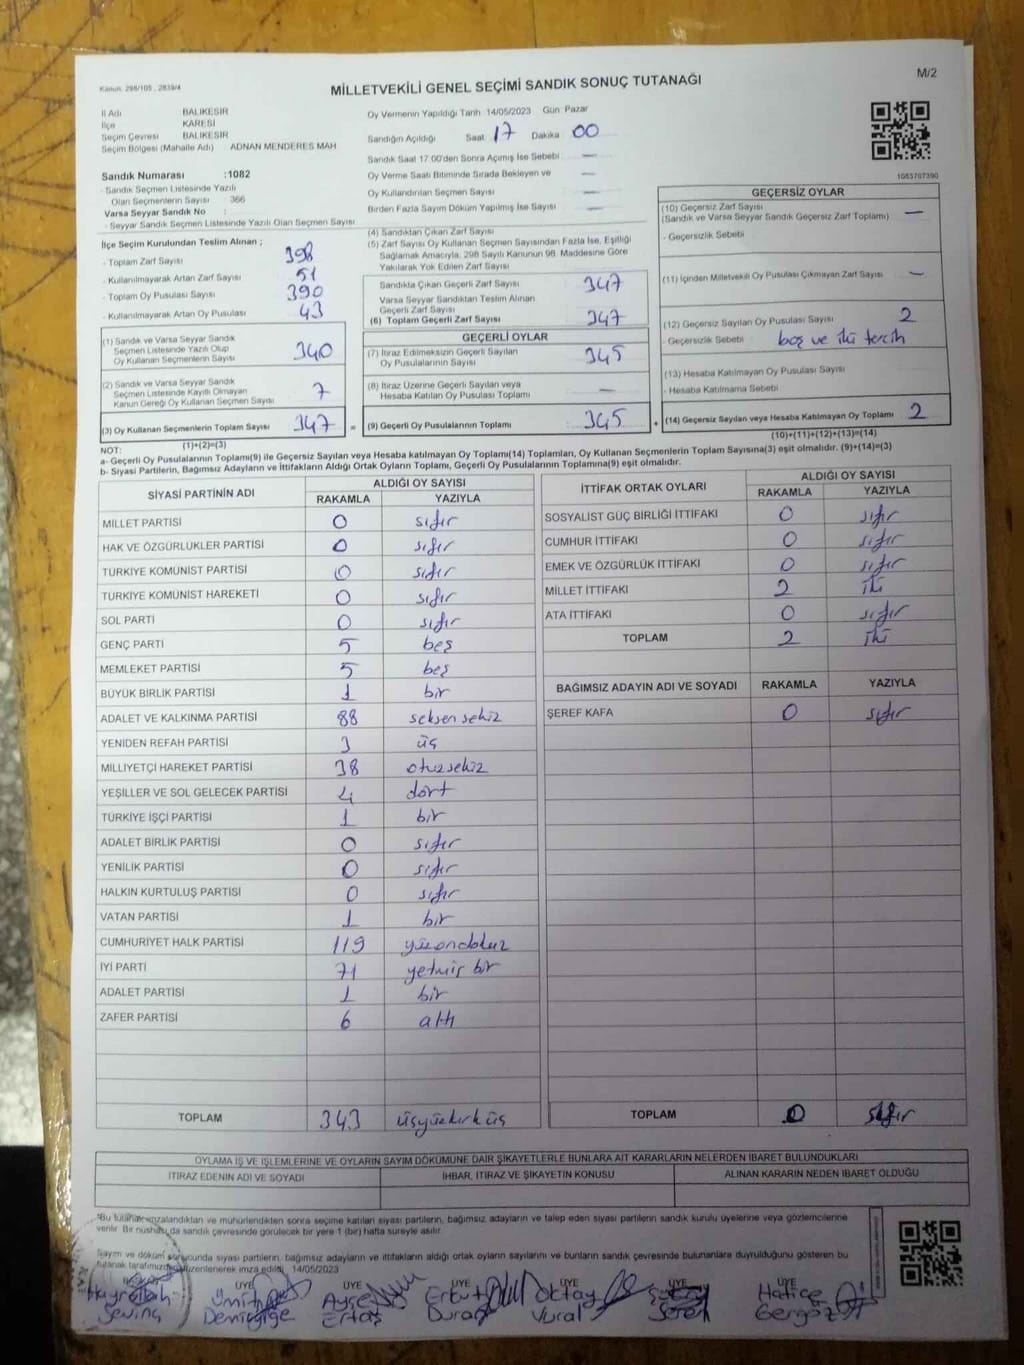 Kanun: 298/105 , 2839/4
MİLLETVEKİLİ GENEL SEÇİMİ SANDIK SONUÇ TUTANAĞI
M/2
İl Adı BALIKESİR
İlçe KARESİ
Seçim Çevresi BALIKESİR
Seçim Bölgesi (Mahalle Adı) ADNAN MENDERES MAH
Sandık Numarası :1082
- Sandık Seçmen Listesinde Yazılı
Olan Seçmenlerin Sayısı 366
Varsa Seyyar Sandık No :
- Seyyar Sandık Seçmen Listesinde Yazılı Olan Seçmen Sayısı
Oy Vermenin Yapıldığı Tarih 14/05/2023 Gün Pazar
Sandığın Açıldığı Saat 17 Dakika 00
Sandık Saat 17:00'den Sonra Açımış İse Sebebi: —
Oy Verme Saati Bitiminde Sırada Bekleyen ve —
Oy Kullandırılan Seçmen Sayısı —
Birden Fazla Sayım Döküm Yapılmış İse Sayısı —
1083707390
İlçe Seçim Kurulundan Teslim Alınan ;
- Toplam Zarf Sayısı 398
- Kullanılmayarak Artan Zarf Sayısı 51
- Toplam Oy Pusulası Sayısı 390
- Kullanılmayarak Artan Oy Pusulası 43
(1) Sandık ve Varsa Seyyar Sandık
Seçmen Listesinde Yazılı Olup
Oy Kullanan Seçmenlerin Sayısı 340
(2) Sandık ve Varsa Seyyar Sandık
Seçmen Listesinde Kayıtlı Olmayan
Kanun Gereği Oy Kullanan Seçmen Sayısı 7
(3) Oy Kullanan Seçmenlerin Toplam Sayısı 347 =
(1)+(2)=(3)
(4) Sandıktan Çıkan Zarf Sayısı
(5) Zarf Sayısı Oy Kullanan Seçmen Sayısından Fazla İse, Eşitliği
Sağlamak Amacıyla, 298 Sayılı Kanunun 98. Maddesine Göre
Yakılarak Yok Edilen Zarf Sayısı
Sandıkta Çıkan Geçerli Zarf Sayısı 347
Varsa Seyyar Sandıktan Teslim Alınan
Geçerli Zarf Sayısı
(6) Toplam Geçerli Zarf Sayısı 347
GEÇERLİ OYLAR
(7) İtiraz Edilmeksizin Geçerli Sayılan
Oy Pusulalarının Sayısı 345
(8) İtiraz Üzerine Geçerli Sayılan veya
Hesaba Katılan Oy Pusulaları Toplamı —
(9) Geçerli Oy Pusulalarının Toplamı 345 +
GEÇERSİZ OYLAR
(10) Geçersiz Zarf Sayısı —
(Sandık ve Varsa Seyyar Sandık Geçersiz Zarf Toplamı)
- Geçersizlik Sebebi
(11) İçinden Milletvekili Oy Pusulası Çıkmayan Zarf Sayısı —
(12) Geçersiz Sayılan Oy Pusulası Sayısı 2
- Geçersizlik Sebebi boş ve iki tercih
(13) Hesaba Katılmayan Oy Pusulası Sayısı
- Hesaba Katılmama Sebebi
(14) Geçersiz Sayılan veya Hesaba Katılmayan Oy Toplamı 2
(10)+(11)+(12)+(13)=(14)
NOT:
a- Geçerli Oy Pusulalarının Toplamı(9) ile Geçersiz Sayılan veya Hesaba Katılmayan Oy Toplamı(14) Toplamları, Oy Kullanan Seçmenlerin Toplam Sayısına(3) eşit olmalıdır. (9)+(14)=(3)
b- Siyasi Partilerin, Bağımsız Adayların ve İttifakların Aldığı Ortak Oyların Toplamı, Geçerli Oy Pusulalarının Toplamına(9) eşit olmalıdır.
SİYASİ PARTİNİN ADI ALDIĞI OY SAYISI
RAKAMLA YAZIYLA
MİLLET PARTİSİ 0 sıfır
HAK VE ÖZGÜRLÜKLER PARTİSİ 0 sıfır
TÜRKİYE KOMÜNİST PARTİSİ 0 sıfır
TÜRKİYE KOMÜNİST HAREKETİ 0 sıfır
SOL PARTİ 0 sıfır
GENÇ PARTİ 5 beş
MEMLEKET PARTİSİ 5 beş
BÜYÜK BİRLİK PARTİSİ 1 bir
ADALET VE KALKINMA PARTİSİ 88 seksen sekiz
YENİDEN REFAH PARTİSİ 3 üç
MİLLİYETÇİ HAREKET PARTİSİ 38 otuzsekiz
YEŞİLLER VE SOL GELECEK PARTİSİ 4 dört
TÜRKİYE İŞÇİ PARTİSİ 1 bir
ADALET BİRLİK PARTİSİ 0 sıfır
YENİLİK PARTİSİ 0 sıfır
HALKIN KURTULUŞ PARTİSİ 0 sıfır
VATAN PARTİSİ 1 bir
CUMHURİYET HALK PARTİSİ 119 yüzondokuz
İYİ PARTİ 71 yetmiş bir
ADALET PARTİSİ 1 bir
ZAFER PARTİSİ 6 altı
TOPLAM 343 üçyüzkırküç
İTTİFAK ORTAK OYLARI ALDIĞI OY SAYISI
RAKAMLA YAZIYLA
SOSYALİST GÜÇ BİRLİĞİ İTTİFAKI 0 sıfır
CUMHUR İTTİFAKI 0 sıfır
EMEK VE ÖZGÜRLÜK İTTİFAKI 0 sıfır
MİLLET İTTİFAKI 2 iki
ATA İTTİFAKI 0 sıfır
TOPLAM 2 iki
BAĞIMSIZ ADAYIN ADI VE SOYADI RAKAMLA YAZIYLA
ŞEREF KAFA 0 sıfır
TOPLAM 0 sıfır
OYLAMA İŞ VE İŞLEMLERİNE VE OYLARIN SAYIM DÖKÜMÜNE DAİR ŞİKAYETLERLE BUNLARA AİT KARARLARIN NELERDEN İBARET BULUNDUKLARI
İTİRAZ EDENİN ADI VE SOYADI İHBAR, İTİRAZ VE ŞİKAYETİN KONUSU ALINAN KARARIN NEDEN İBARET OLDUĞU
*Bu tutanak imzalandıktan ve mühürlendikten sonra seçime katılan siyasi partilerin, bağımsız adayların ve talep eden siyasi partilerin sandık kurulu üyelerine veya gözlemcilerine
verilir. Bir nüshası da sandık çevresinde görülecek bir yere 1 (bir) hafta süreyle asılır.
Sayım ve döküm sonucunda siyasi partilerin, bağımsız adayların ve ittifakların aldığı ortak oyların sayılarını ve bunların sandık çevresinde bulunanlara duyrulduğunu gösteren bu
tutanak tarafımızdan düzenlenerek imza edildi. 14/05/2023
ÜYE ÜYE ÜYE ÜYE ÜYE ÜYE
Hayrullah Ümit Ayşe Erbut Oktay Hatice
Sevinç Ertaş Duran Vural